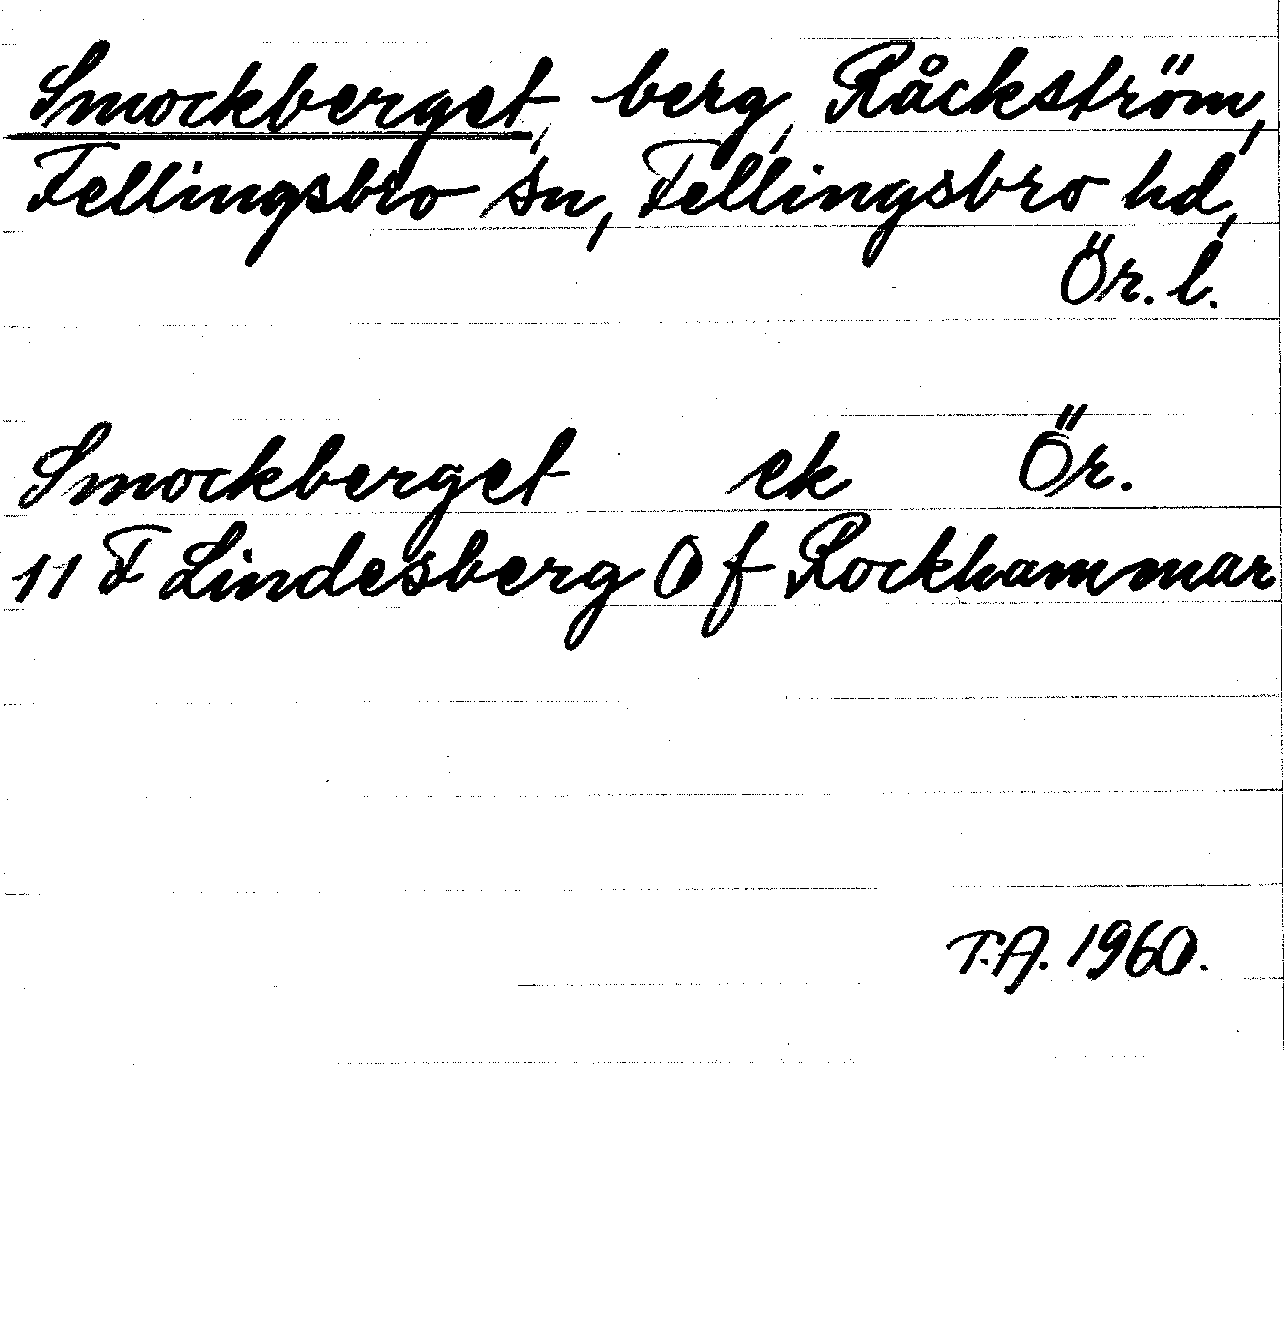 Smockberget, berg, Råckström,
Fellingsbro sn, Fellingsbro hd,
Ör. l.
Smockberget ek Ör.
11 F Lindesberg 0 f Rockhammar
T.A. 1960.